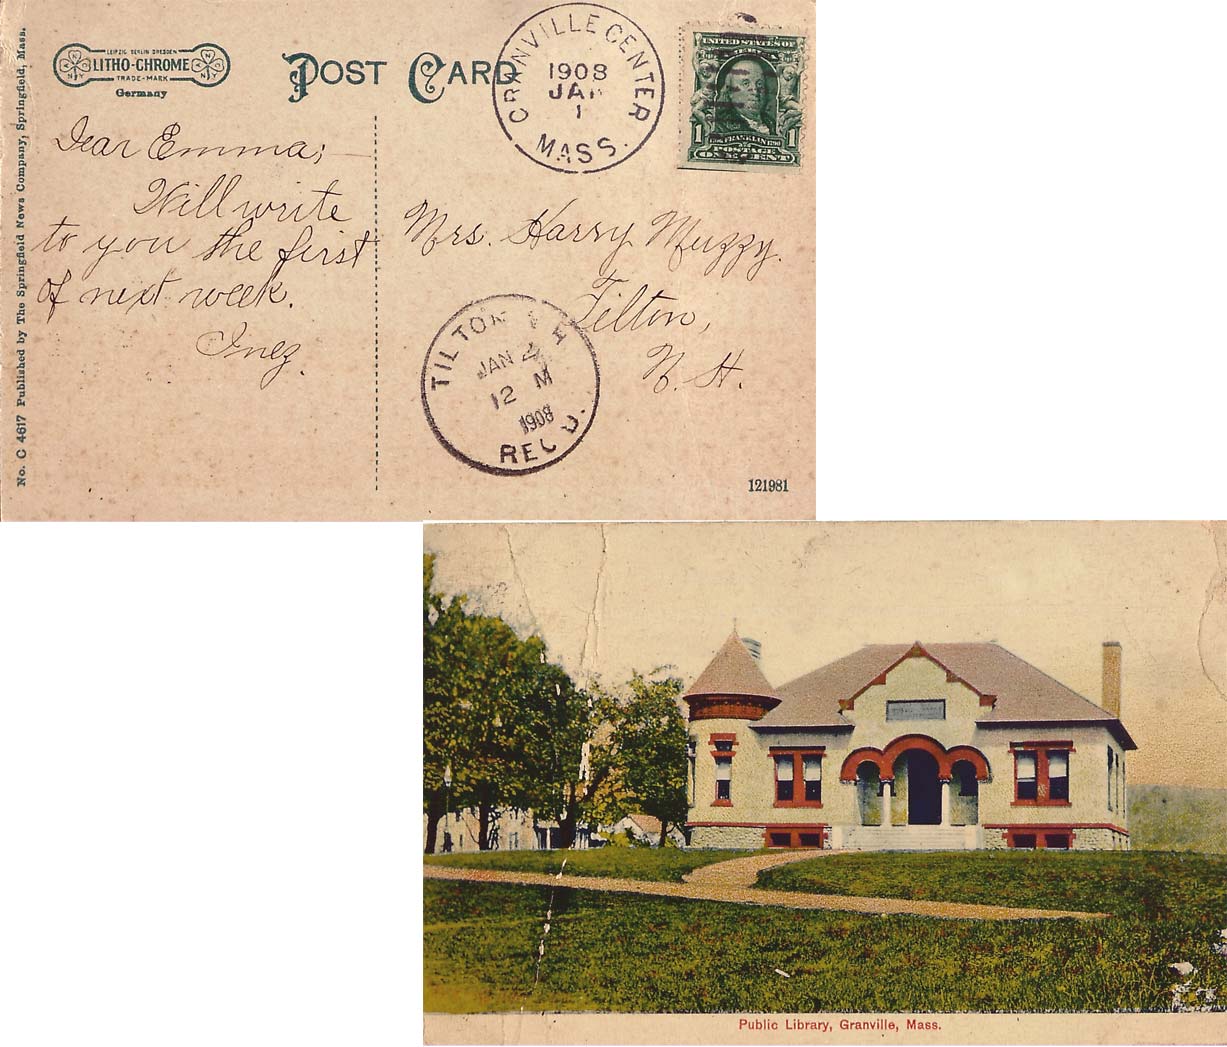 No. C 4617 Published by The Springfield News Company, Springfield, Mass.
LEIPZIG BERLIN DRESDEN
LITHO-CHROME
TRADE-MARK
Germany
POST CARD
GRANVILLE CENTER
1908
JAN
1
MASS.
UNITED STATES OF
AMERICA
1 FRANKLIN 1
POSTAGE
ONE CENT
Dear Emma;
Will write
to you the first
of next week.
Inez.
Mrs. Harry Muzzy.
Tilton,
N. H.
TILTON N H
JAN
12 M
1908
REC'D.
121981
Public Library, Granville, Mass.